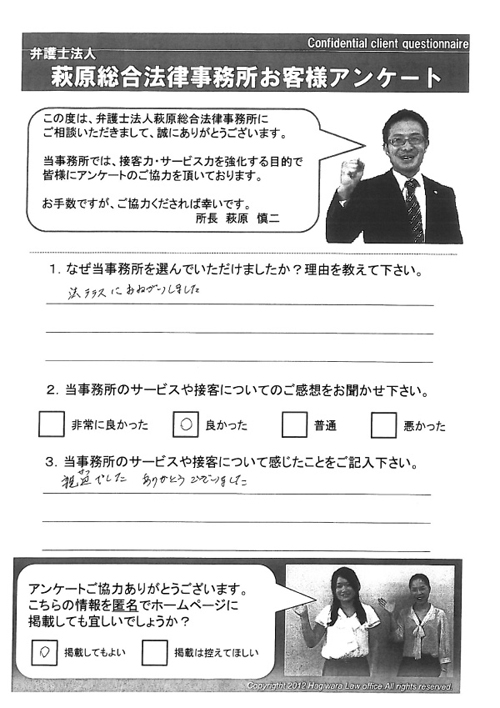 Confidential client questionnaire
弁護士法人
萩原総合法律事務所お客様アンケート
この度は、弁護士法人萩原総合法律事務所に
ご相談いただきまして、誠にありがとうございます。
当事務所では、接客力・サービス力を強化する目的で
皆様にアンケートのご協力を頂いております。
お手数ですが、ご協力くだされば幸いです。
所長 萩原 慎二
1. なぜ当事務所を選んでいただけましたか?理由を教えて下さい。
法テラスにおねがいしました
2. 当事務所のサービスや接客についてのご感想をお聞かせ下さい。
非常に良かった 〇 良かった 普通 悪かった
3. 当事務所のサービスや接客について感じたことをご記入下さい。
でした ありがとうございました
アンケートご協力ありがとうございます。
こちらの情報を匿名でホームページに
掲載しても宜しいでしょうか?
〇 掲載してもよい 掲載は控えてほしい
Copyright 2012 Hagiwara Law office All rights reserved